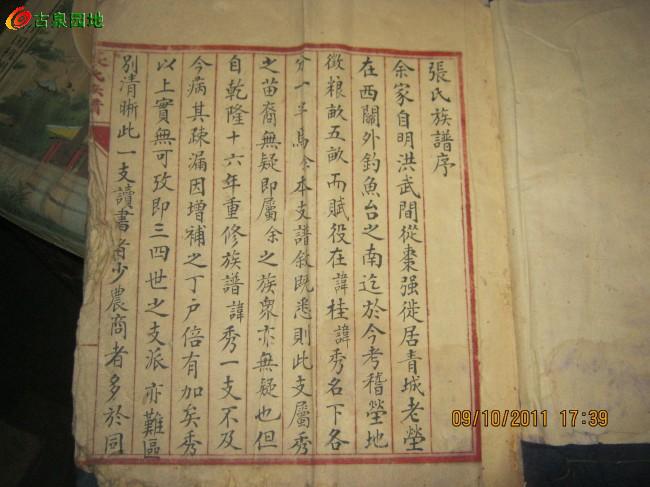 古泉园地
張氏族譜序
余家自明洪武間從棗强徙居青城老塋
在西關外釣魚台之南迄於今考稽塋地
徵粮畝五畝而賦役在諱桂諱秀名下各
分一半焉余本支譜敘既悉則此支屬秀
之苗裔無疑即屬余之族衆亦無疑也但
自乾隆十六年重修族譜諱秀一支不及
今病其疎漏因增補之丁户倍有加矣秀
以上實無可攷即三四世之支派亦難區
別清晰此一支讀書者少農商者多於同
氏族譜
09/10/2011 17:39